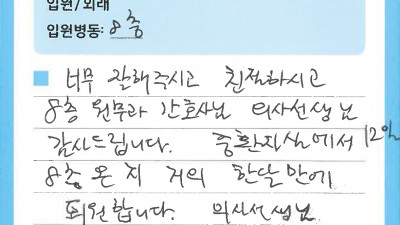 입원/외래
입원병동: 8층
너무 잘해주시고 친절하시고
8층 원무과 간호사님 의사선생님
감사드립니다. 중환자실에서 12일
8층 온 지 거의 한달만에
퇴원합니다. 의사선생님